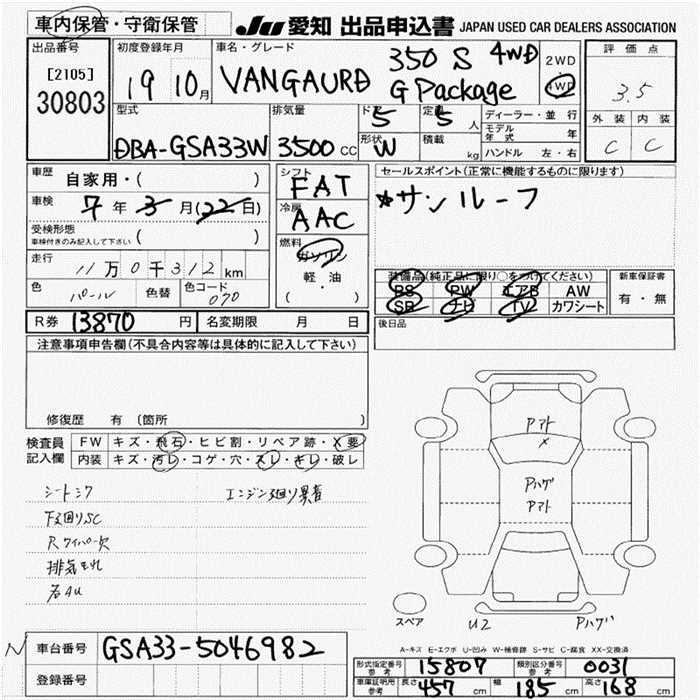 車内保管・守衛保管
JU 愛知 出品申込書 JAPAN USED CAR DEALERS ASSOCIATION
出品番号
[2105]
30803
初度登録年月
19 10月
車名・グレード
VANGAURD 350 S 4WD
G Package
2WD
4WD
評価点
3.5
外装 内装
C C
型式
DBA-GSA33W
排気量
3500 CC
ドア
5
定員
5 人
形状
W
積載
kg
ディーラー・並行
モデル年式 年
ハンドル 左・右
車歴
自家用・( )
車検
7年3月(22日)
受検形態
車検付きのみ記入して下さい ( )
走行
11万0千312km
色
パール
色替
色コード
070
シフト
FAT
冷房
AAC
燃料
ガソリン
軽・油
( )
セールスポイント(正常に機能するものに限ります)
*サンルーフ
装備品(純正品に限り○をつけてください)
PS PW エアB AW
SR ナビ TV カワシート
新車保証書
有・無
後日品
R券 13870 円
名変期限 月 日
注意事項申告欄(不具合内容等は具体的に記入して下さい)
修復歴 有 〔箇所 〕
検査員記入欄
FW キズ・飛石・ヒビ割・リペア跡・X要
内装 キズ・汚レ・コゲ・穴・スレ・キレ・破レ
シートミワ
エンジン廻り異音
F廻りSC
Rワイパー欠
排気もれ
右4U
Pアト
X
Pハゲ
Pアト
スペア
U2
Pハゲ
A-キズ E-エクボ U-凹み W-補修跡 S-サビ C-腐食 XX-交換済
N
車台番号
GSA33-5046982
登録番号
形式指定番号 参考
15807
類別区分番号 参考
0031
車庫証明用 参考
長さ 457 cm
幅 185 cm
高さ 168 cm